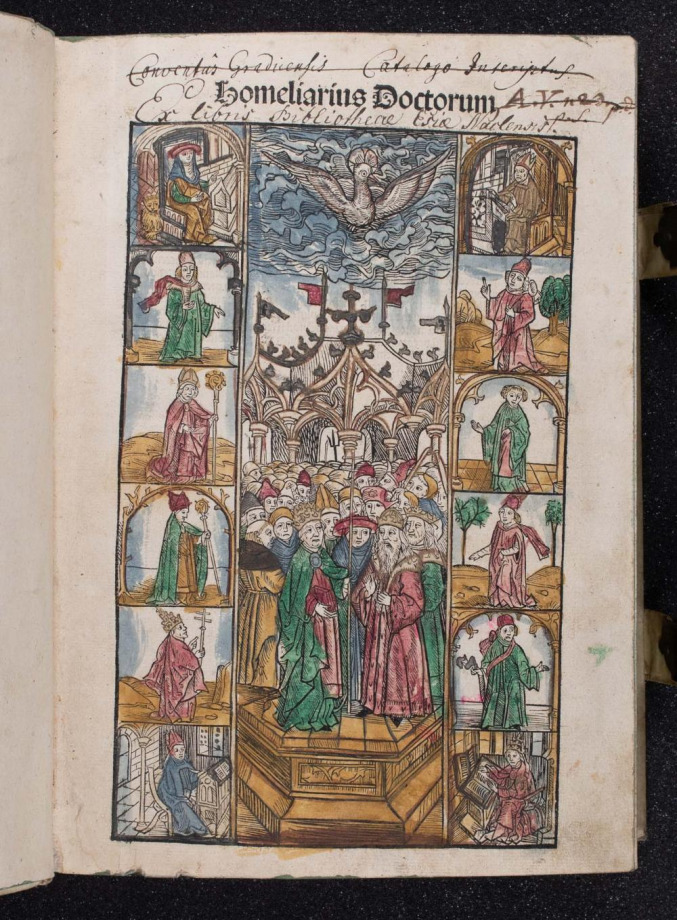 Conventûs Gradicensis Catalogo Inscriptus
Homeliarius Doctorum A.V. n.
Ex libris Bibliothecæ